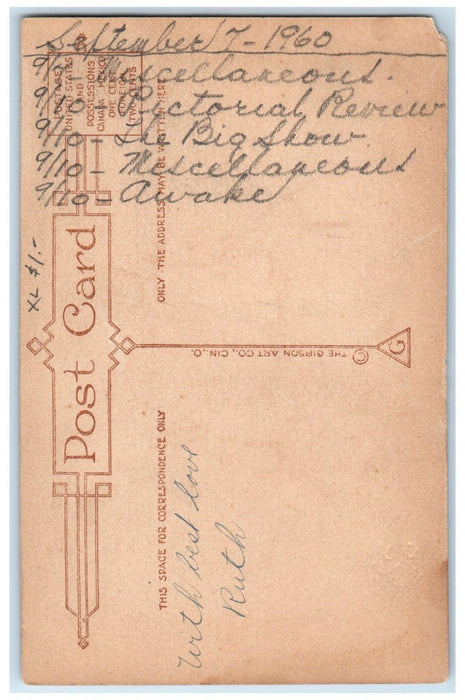 September 7-1960
9/10 - Miscellaneous.
9/10 - Pictorial Review
9/10 - The Big Show
9/10 - Miscellaneous
9/10 - Awake
XL $1.-
Post Card
POSTAGE
UNITED STATES
AND
POSSESSIONS
CANADA MEXICO
ONE CENT
FOREIGN
TWO CENTS
ONLY THE ADDRESS MAY BE WRITTEN HERE
© THE GIBSON ART CO., CIN., O.
G
THIS SPACE FOR CORRESPONDENCE ONLY
With best love
Ruth